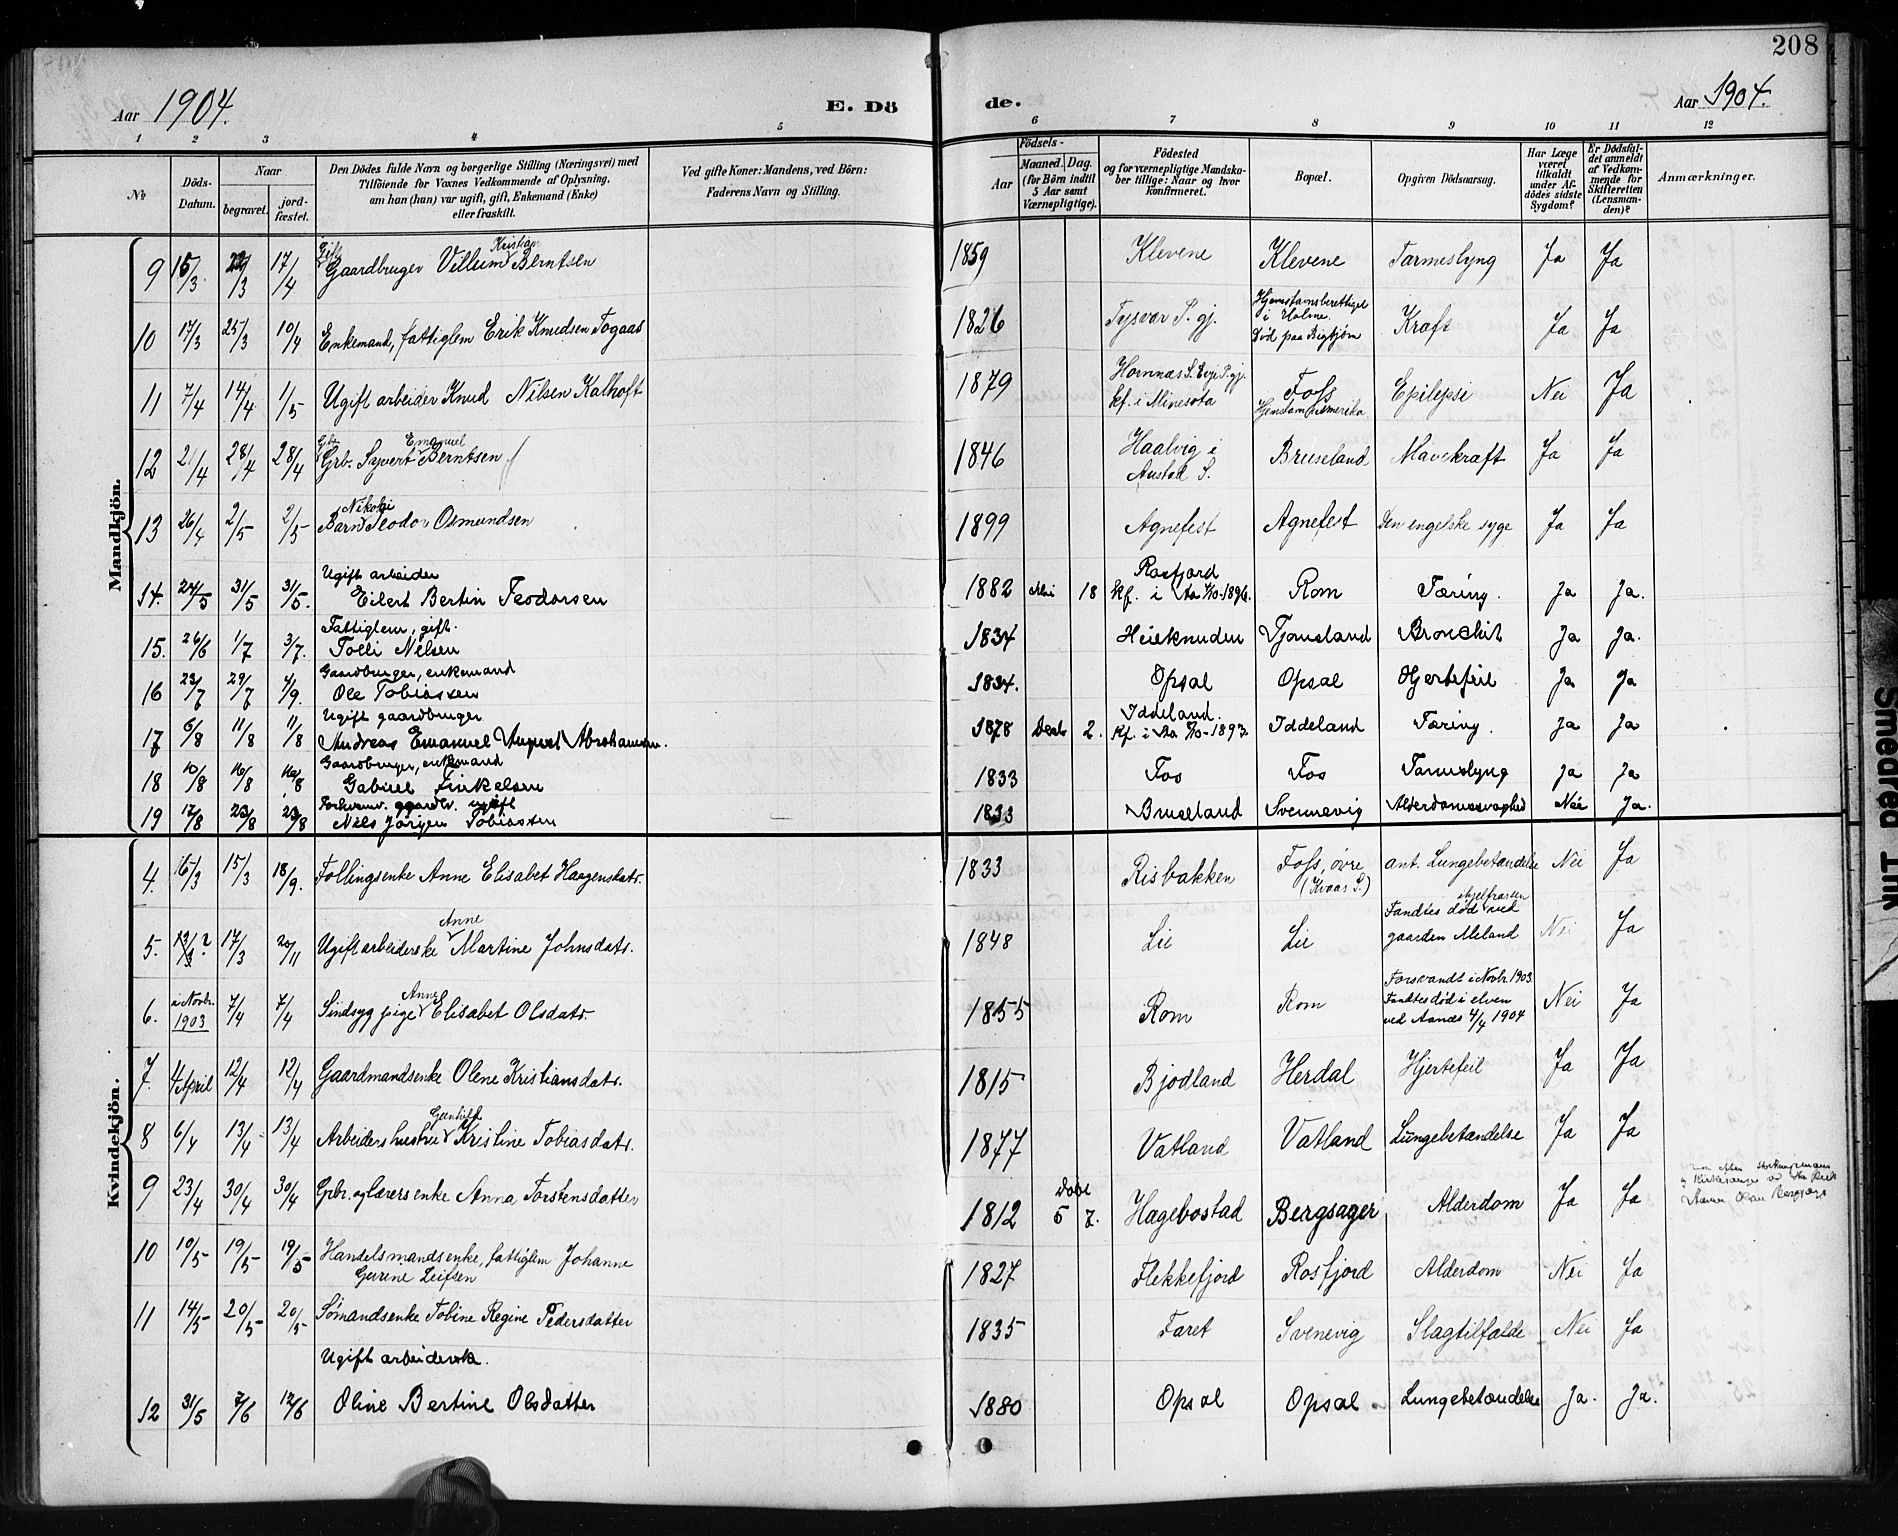 208
Aar 1904.
E. Dö
de.
Aar 1904.
1 2 3 4 5 6 7 8 9 10 11 12
No
Döds-Datum.
Naar
begravet.
jord-fæstet.
Den Dödes fulde Navn og borgerlige Stilling (Næringsvei) med
Tilföiende for Voxnes Vedkommende af Oplysning,
om han (hun) var ugift, gift, Enkemand (Enke)
eller fraskilt.
Ved gifte Koner: Mandens, ved Börn:
Faderens Navn og Stilling.
Födsels-
Aar
Maaned. Dag.
(for Börn indtil
5 Aar samt
Værnepligtige).
Födested
og for værnepligtige Mandska-
ber tillige: Naar og hvor
konfirmeret.
Bopæl.
Opgiven Dödsaarsag.
Har Læge
været
tilkaldt
under Af-
dödes sidste
Sygdom?
Er Dödsfal-
det anmeldt
af Vedkom-
mende for
Skifteretten
(Lensman-
den)?
Anmærkninger.
Mandkjön.
9 15/3 22/3 17/4 Gift Gaardbruger Villum Kristian Berntsen 1859 Klevene Klevene Tarmeslyng Ja Ja
10 17/3 25/3 10/4 Enkemand, fattiglem Erik Knudsen Togaas 1826 Tysvær P. gj. Hjemstamsberettiget i Holme. Död paa Bigkjöm Kræft Ja Ja
11 7/4 14/4 1/5 Ugift arbeider Knud Nilsen Kalhoft 1879 Hornnæs S. Evje P. gj. kf. i Minesota Foss Epilepsi Nei Ja
12 21/4 28/4 28/4 Grb. Syvert Emanuel Berntsen 1846 Haalvig i Austad S. Bruseland Mavekræft Ja Ja
13 26/4 2/5 2/5 Barn Nikolai Teodor Osmundsen 1899 Agnefest Agnefest Den engelske syge Ja Ja
14. 24/5 31/5 31/5. Ugift arbeider
Eilert Bertin Teodorsen 1882 Mai 18 Rosfjord kf. i Aa 4/10-1896. Rom Tæring. Ja Ja.
15. 26/6 1/7 3/7. Fattiglem, gift.
Tolli Nilsen 1834 Heieknuden Tjomsland Bronchit Ja Ja.
16 23/7 29/7 4/9. Gaardbruger, enkemand
Ole Tobiassen 1834. Opsal Opsal Hjertefeil Ja Ja
17 6/8 11/8 11/8 Ugift gaardbruger
Andreas Emanuel August Abrahamsen. 1878 Decbr 2. Iddeland. Kf. i Aa 1/10-1893. Iddeland Tæring. Ja Ja
18 10/8 16/8 16/8 Gaardbruger, enkemand
Gabriel Finkelsen 1833 Fos Fos Tarmeslyng Ja Ja
19 17/8 23/8 23/8 Forhenv. gaardbr. ugift
Nils Jörgen Tobiassen 1833 Bruseland Svennevig Alderdomssvaghed Nei Ja.
Kvindekjön.
4. 15/3 18/9. Follingsenke Anne Elisabet Haagensdatr. 1833 Risbakken Foss, övre (Kvaas S.) ant. Lungebetændelse Nei Ja
5. 13/3? 17/3 20/11 Ugift arbeiderske Anne Martine Johnsdatr. 1848 Lie Lie Fandtes død ihjelfrossen ved gaarden Meland Nei Ja
6. i Novbr. 1903 7/4 7/4 Sindsyg pige Anne Elisabet Olsdatr. 1855 Rom Rom Forsvandt i Novbr. 1903. Fandtes død i elven ved Aanæs 4/4 1904 Nei Ja
7. 4 April 12/4 12/4 Gaardmandsenke Olene Kristiansdatr. 1815 Bjodland Herdal Hjertefeil Ja Ja
8 6/4 13/4 13/4 Arbeidershustru Gunhild Kristine Tobiasdatr. 1877 Vatland Vatland Lungebetændelse Ja Ja
9 23/4 30/4 30/4 Gbr. og lærersenke Anna Torstensdatter 1812 5 7. Hægebostad Bergsager Alderdom Ja Ja
10 10/5 19/5 19/5 Handelsmandsenke, fattiglem Johanne
Gurine Leifsen 1827 Flekkefjord Rosfjord Alderdom Nei Ja
11 14/5 20/5 20/5 Sømandsenke Tobine Regine Pedersdatter 1835 Faret Svenevig Slagtilfælde Nei Ja
Ugift arbeiderske.
12 31/5 7/6 12/6 Oline Bertine Olsdatter 1880 Opsal Opsal Lungebetændelse Ja. Ja.
Smedred Trik